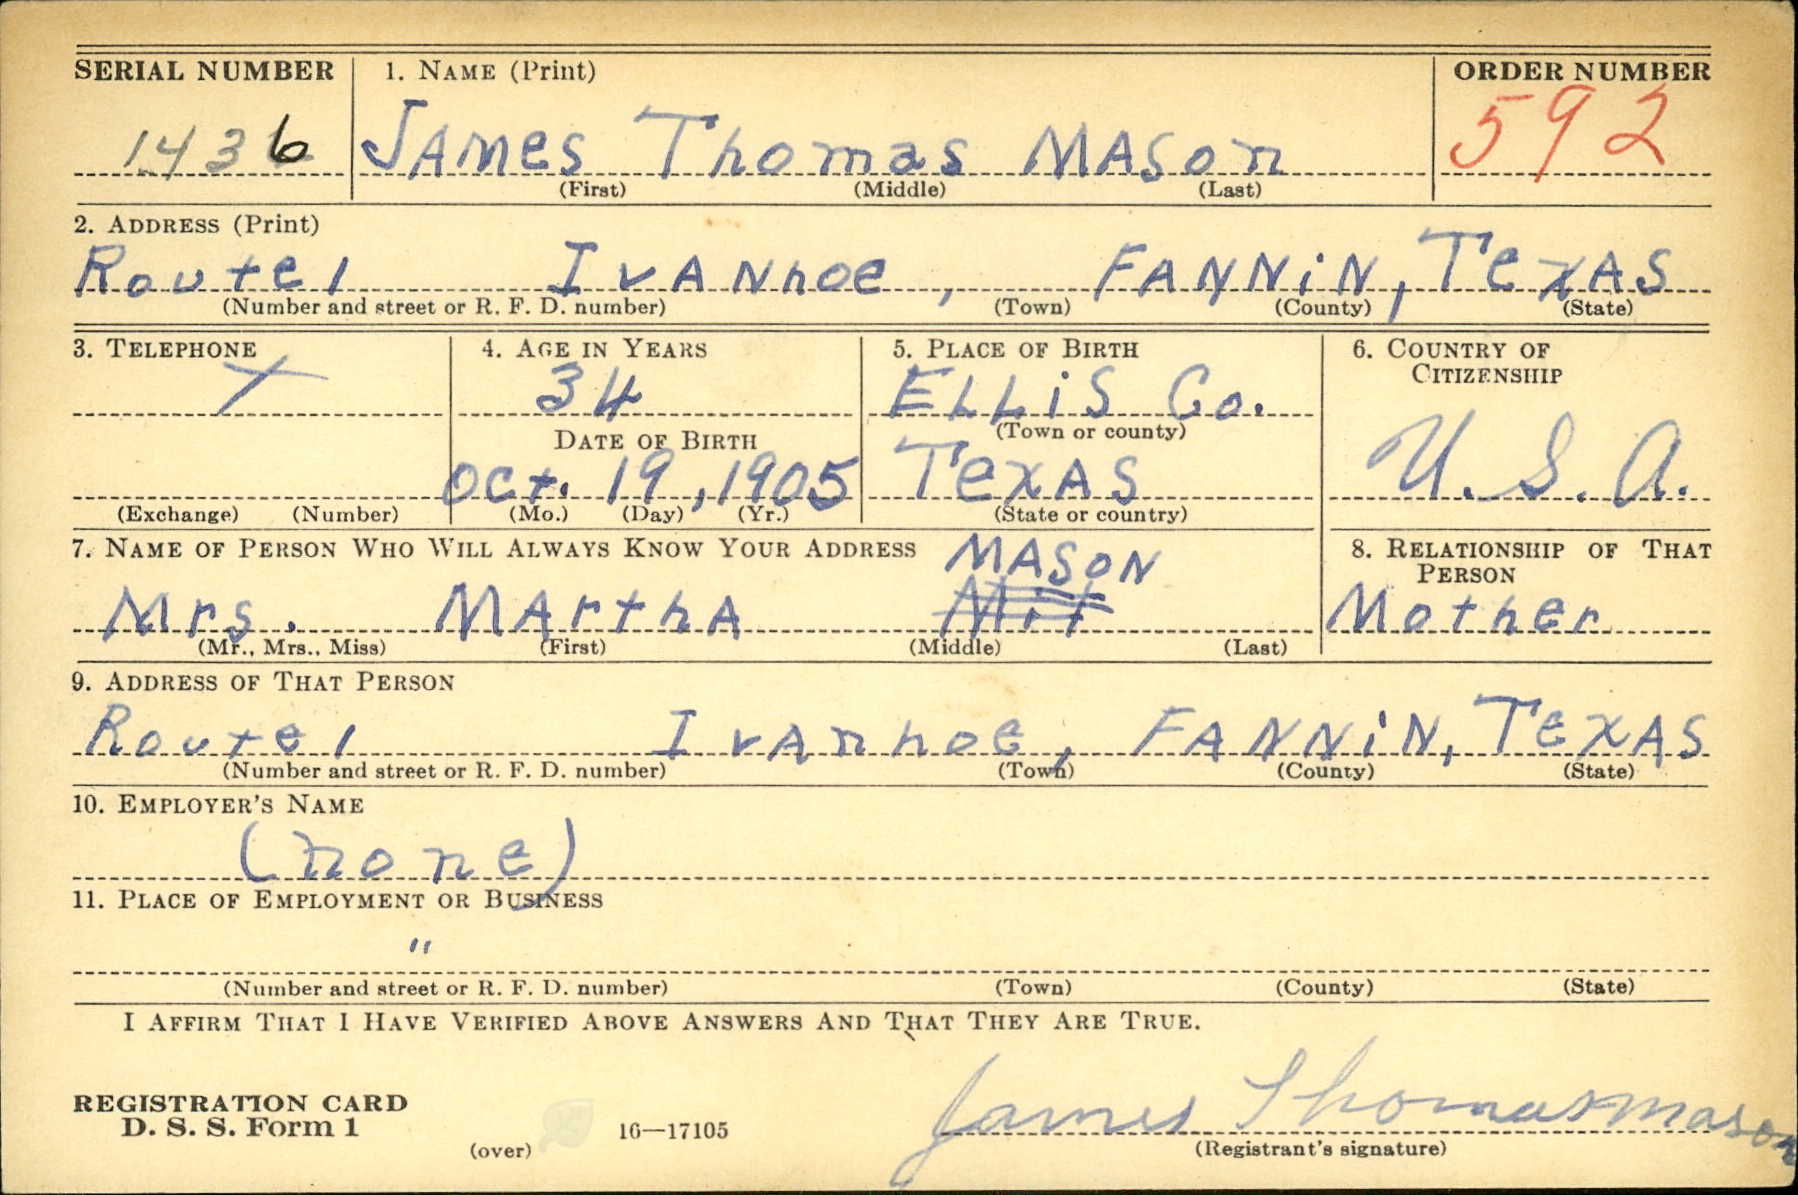 SERIAL NUMBER 1. NAME (Print) ORDER NUMBER
1436 JAMES Thomas MASon 592
(First) (Middle) (Last)
2. ADDRESS (Print)
Route 1 IvANhoe, FANNiN, TexAS
(Number and street or R. F. D. number) (Town) (County) (State)
3. TELEPHONE 4. AGE IN YEARS 5. PLACE OF BIRTH 6. COUNTRY OF CITIZENSHIP
X 34 ELLiS Co. U.S.A.
DATE OF BIRTH (Town or county)
Oct. 19, 1905 TexAS
(Exchange) (Number) (Mo.) (Day) (Yr.) (State or country)
7. NAME OF PERSON WHO WILL ALWAYS KNOW YOUR ADDRESS 8. RELATIONSHIP OF THAT PERSON
Mrs. MArthA MASON Mother
(Mr., Mrs., Miss) (First) (Middle) (Last)
9. ADDRESS OF THAT PERSON
Route 1 IvAnhoe, FANNiN, TexAS
(Number and street or R. F. D. number) (Town) (County) (State)
10. EMPLOYER'S NAME
(none)
11. PLACE OF EMPLOYMENT OR BUSINESS
"
(Number and street or R. F. D. number) (Town) (County) (State)
I AFFIRM THAT I HAVE VERIFIED ABOVE ANSWERS AND THAT THEY ARE TRUE.
James Thomas Mason
REGISTRATION CARD
D. S. S. Form 1
(over) 16—17105 (Registrant's signature)